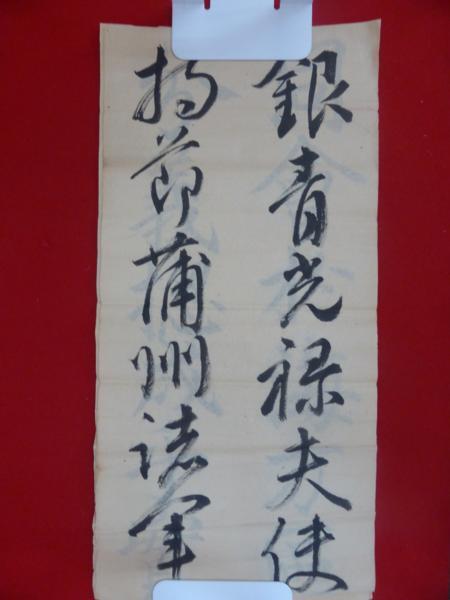 銀青光禄夫使
持節蒲州諸軍